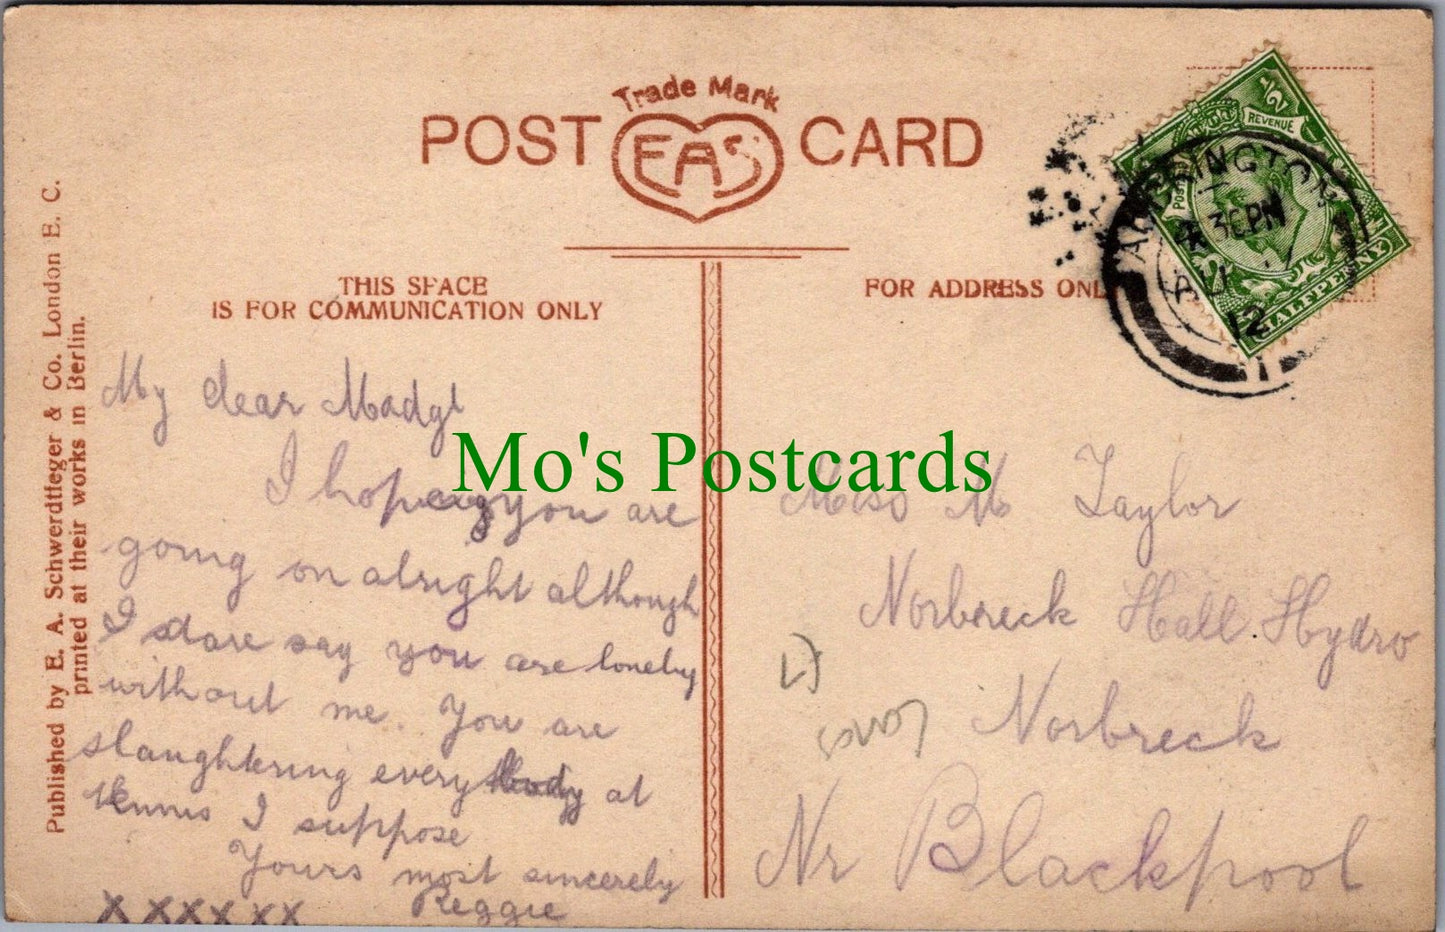 Trade Mark
POST EAS CARD
THIS SPACE
IS FOR COMMUNICATION ONLY
FOR ADDRESS ONL
1/2
REVENUE
POST
HALFPENNY
ACCRINGTON
30 PM
AU
12
1
Published by E. A. Schwerdtfeger & Co. London E. C.
printed at their works in Berlin.
My dear Madge
I hope you are
going on alright although
I dare say you are lonely
without me. You are
slaughtering every body at
tennis I suppose
Yours most sincerely
Reggie
X XXXX XX
Mo's Postcards
Miss M Taylor
Norbreck Hall Hydro
Norbreck
Nr Blackpool